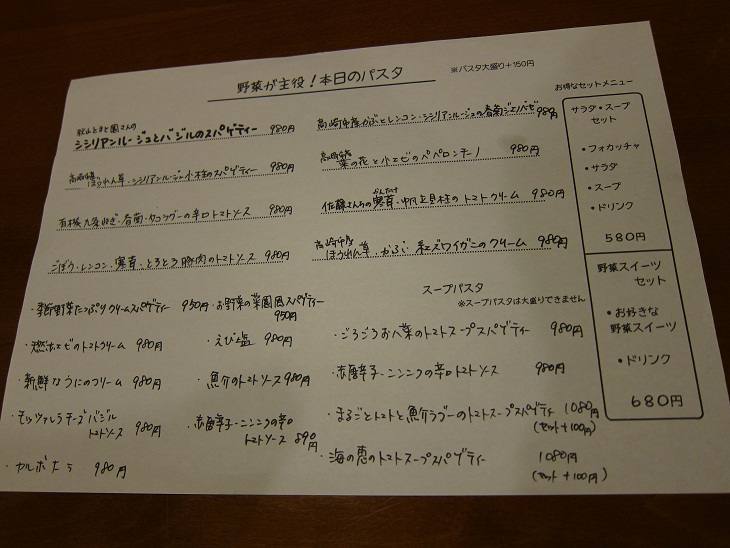 野菜が主役!本日のパスタ
※パスタ大盛り+150円
秋山とまと園さんの
シシリアンルージュとバジルのスパゲティー 980円
ほうれん草・シシリアンルージュ・小柱のスパゲティー 980円
有機九条ねぎ・春菊・タコラグーの辛口トマトソース 980円
ごぼう・レンコン・寒茸・とろとろ豚肉のトマトソース 980円
高崎市産かぶとレンコン・シシリアンルージュの春菊ジェノベーゼ 980円
菜の花と小エビのペペロンチーノ 980円
佐藤さんちの寒茸・帆立貝柱のトマトクリーム 980円
高崎市産
ほうれん草・かぶ・紅ズワイガニのクリーム 980円
・季節野菜たっぷりクリームスパゲティー 950円
・お野菜の菜園風スパゲティー
950円
小エビのトマトクリーム 980円
・えび塩 980円
・新鮮なうにのクリーム 980円
・魚介のトマトソース 980円
・モッツァレラチーズバジル
トマトソース 980円
・赤唐辛子・ニンニクの辛口
トマトソース 890円
・カルボナーラ 980円
スープパスタ
※スープパスタは大盛りできません
・ごろごろお八菜のトマトスープスパゲティー 980円
・赤唐辛子・ニンニクの辛口トマトソース 980円
・まるごとトマトと魚介ラグーのトマトスープスパゲティ 1080円
(セット+100円)
・海の恵のトマトスープスパゲティー 1080円
(セット+100円)
お得なセットメニュー
サラダ・スープ
セット
・フォカッチャ
・サラダ
・スープ
・ドリンク
580円
野菜スイーツ
セット
・お好きな
野菜スイーツ
・ドリンク
680円